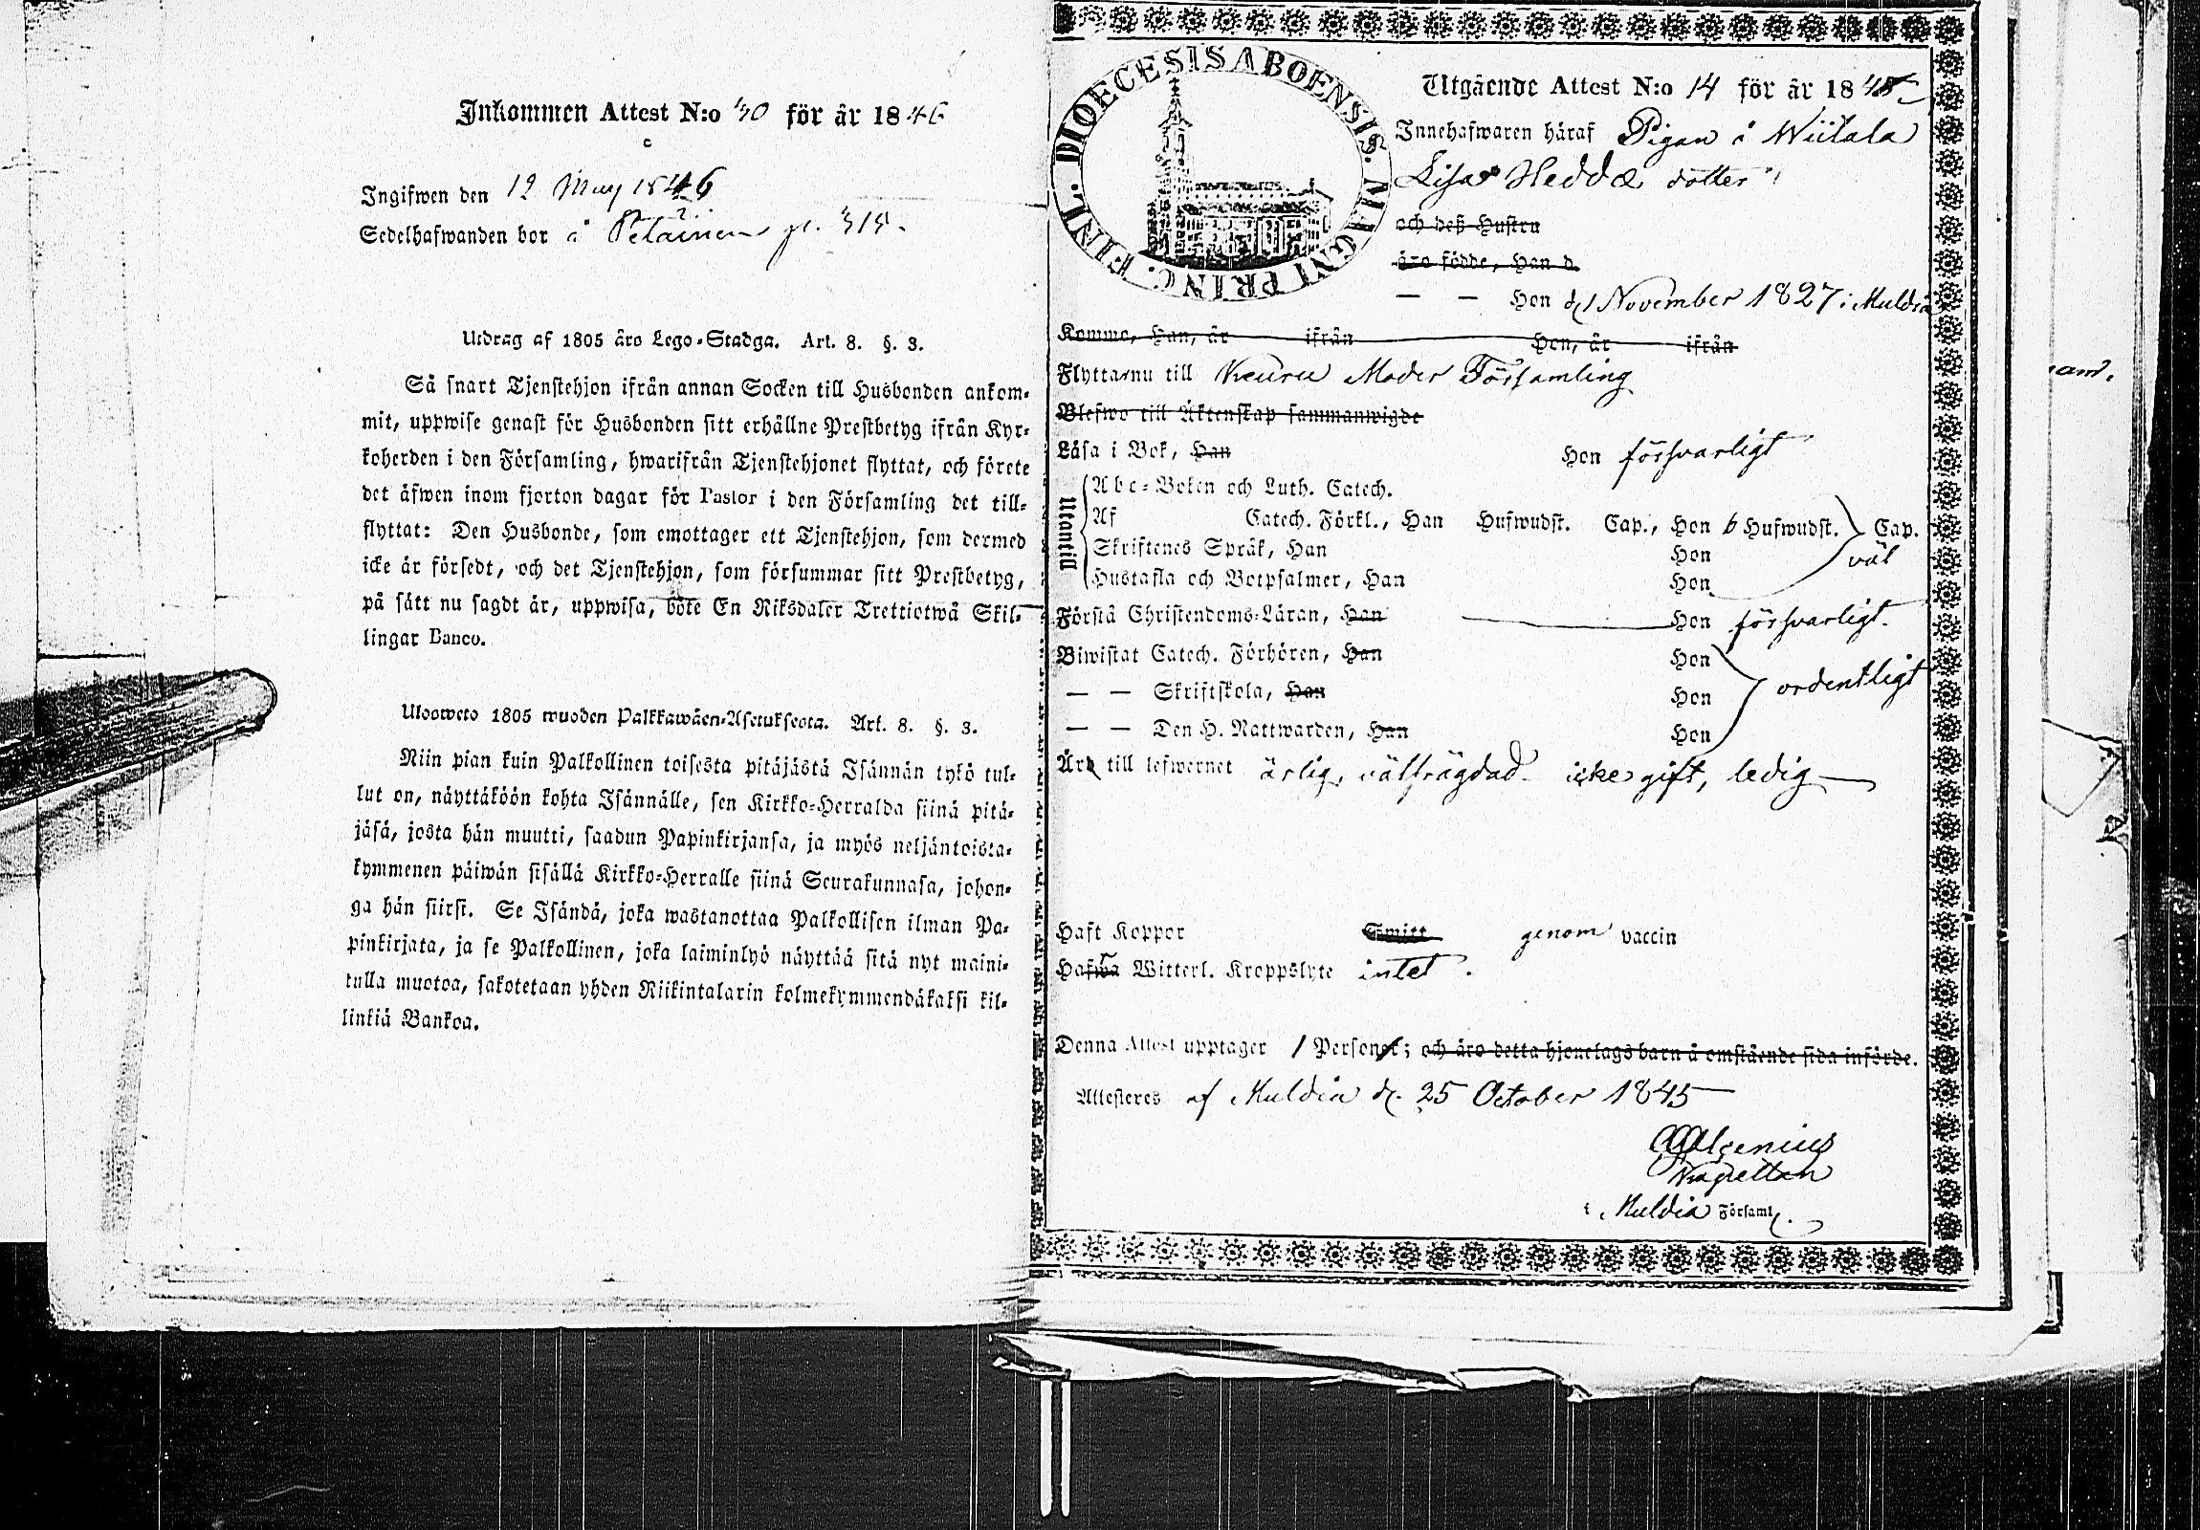 Inkommen Attest N:o 30 för år 1846
Ingifwen den 12 May 1846
Sedelhafwanden bor å Petäinen
Utdrag af 1805 års Lego-Stadga. Art. 8. §. 3.
Så snart Tjenstehjon ifrån annan Socken till Husbonden ankom-
mit, uppwise genast för Husbonden sitt erhållne Prestbetyg ifrån Kyr-
koherden i den Församling, hwarifrån Tjenstehjonet flyttat, och förete
det äfwen inom fjorton dagar för Pastor i den Församling det till-
flyttat: Den Husbonde, som emottager ett Tjenstehjon, som dermed
icke är försedt, och det Tjenstehjon, som försummar sitt Prestbetyg,
på sätt nu sagdt är, uppwisa, böte En Riksdaler Trettiotwå Skil-
lingar Banco.
Ulosweto 1805 wuoden Palkkawäen-Asetuksesta. Art. 8. §. 3.
Niin pian kuin Palkollinen toisesta pitäjästä Isännän tykö tul-
lut on, näyttäköön kohta Isännälle, sen Kirkko-Herralda siinä pitä-
jäsä, josta hän muutti, saadun Papinkirjansa, ja myös neljäntoista-
kymmenen päiwän sisällä Kirkko-Herralle siinä Seurakunnasa, johon-
ga hän siirsi. Se Isändä, joka wastanottaa Palkollisen ilman Pa-
pinkirjata, ja se Palkollinen, joka laiminlyö näyttää sitä nyt maini-
tulla muotoa, sakotetaan yhden Riikintalarin kolmekymmendäkaksi kil-
linkiä Bankoa.
DIOECESIS ABOENSIS. MAGNI PRINC. FINL.
Utgående Attest N:o 14 för år 1845
Innehafwaren häraf Pigan å Wiitala
Lisa Hedda dotter
och deß Hustru
äro födde, Han d.
— — Hon d. 1 November 1827 i Muldia
Komne, Han, år ifrån Hon, år ifrån
Flytta nu till Keuru Moder Församling
Blefwo till Äktenskap sammanwigde
Läsa i Bok, Han Hon försvarligt
Utantill
Abc-Boken och Luth. Catech.
Af Catech. Förkl., Han Hufwudst. Cap., Hon 6 Hufwudst. Cap.
Skriftenes Språk, Han Hon väl
Hustafla och Botpsalmer, Han Hon
Förstå Christendoms-Läran, Han Hon försvarligt.
Biwistat Catech. Förhören, Han Hon
— — Skriftskola, Han Hon ordentligt
— — Den H. Nattwarden, Han Hon
Är till lefwernet ärlig, välfrägdad icke gift, ledig
Haft Koppor Smitt genom vaccin
Hafwa Witterl. Kroppslyte intet.
Denna Attest upptager 1 Personer; och äro detta hjonelags barn å omstående sida införde.
Attesteres af Muldia d. 25 October 1845
Algenius
i Muldia Församl.